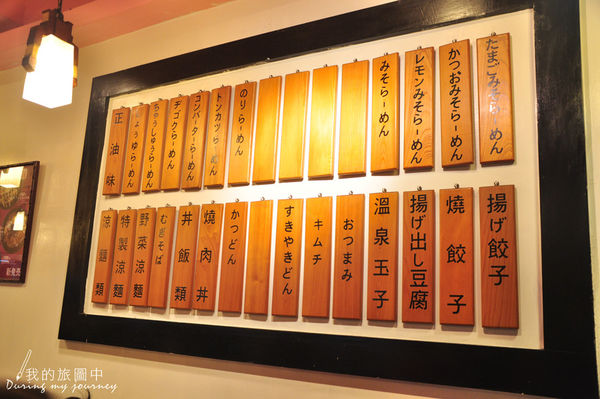 たまごみそらーめん
かつおみそらーめん
レモンみそらーめん
みそらーめん
のりらーめん
トンカツらーめん
コンバターらーめん
ヂゴクらーめん
ちゃうしゅうらーめん
しょうゆらーめん
正油味
揚げ餃子
焼餃子
揚げ出し豆腐
温泉玉子
おつまみ
キムチ
すきやきどん
かつどん
燒肉丼
丼飯類
むぎそば
野菜涼麵
特製涼麵
涼麵類
我的旅圖中
During my journey